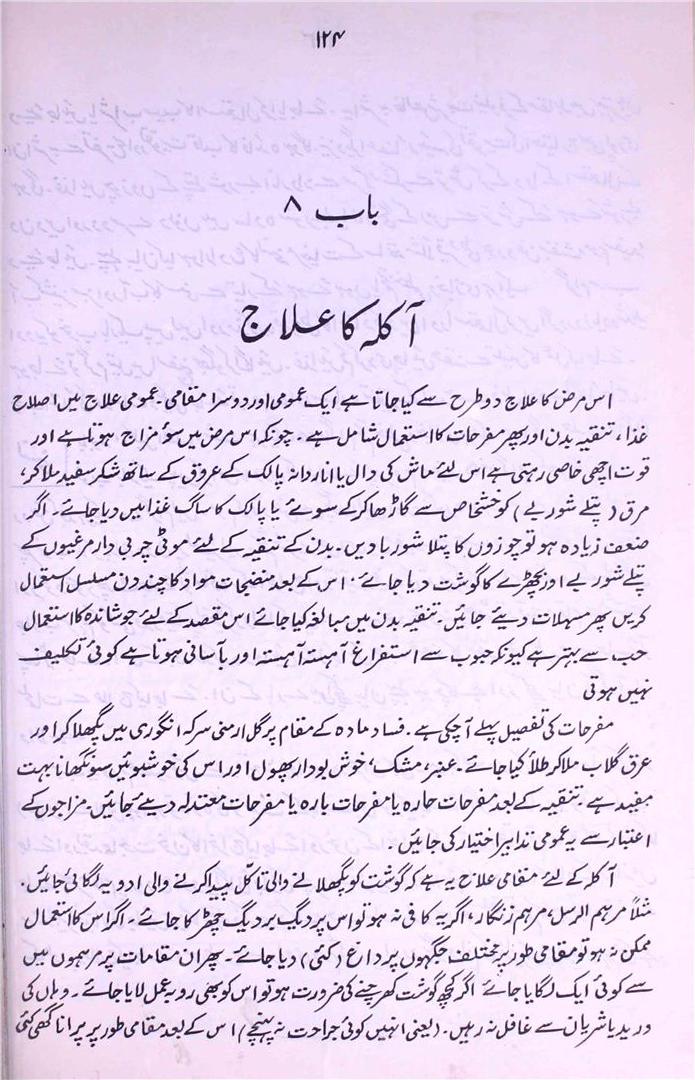 ۱۲۴
باب ۸
آکلہ کا علاج
اس مرض کا علاج دو طرح سے کیا جاتا ہے ایک عمومی اور دوسرا مقامی۔ عمومی علاج میں اصلاح
غذا، تنقیہ بدن اور پھر مفرحات کا استعمال شامل ہے۔ چونکہ اس مرض میں سوٴ مزاج ہوتا ہے اور
قوت اچھی خاصی رہتی ہے اس لئے ماش کی دال یا اناردانہ پالک کے عروق کے ساتھ شکر سفید ملا کر،
مرق (پتلے شوربے) کو خشخاص سے گاڑھا کر کے سوئے یا پالک کا ساگ غذا میں دیا جائے۔ اگر
ضعف زیادہ ہو تو چوزوں کا پتلا شوربا دیں۔ بدن کے تنقیہ کے لئے موٹی چربی دار مرغیوں کے
پتلے شوربے اور بچھڑے کا گوشت دیا جائے۔ اس کے بعد منضجات مواد کا چند دن مسلسل استعمال
کریں پھر مسہلات دیئے جائیں۔ تنقیہ بدن میں مبالغہ کیا جائے اس مقصد کے لئے جوشاندہ کا استعمال
حب سے بہتر ہے کیونکہ حبوب سے استفراغ آہستہ آہستہ اور بآسانی ہوتا ہے کوئی تکلیف
نہیں ہوتی
مفرحات کی تفصیل پہلے آچکی ہے۔ فساد مادہ کے مقام پر گل ارمنی سرکہ انگوری میں پگھلا کر اور
عرق گلاب ملا کر طلأ کیا جائے۔ عنبر، مشک، خوش بودار پھول اور اس کی خوشبوئیں سونگھانا بہت
مفید ہے۔ تنقیہ کے بعد مفرحات حارہ یا مفرحات بارہ یا مفرحات معتدلہ دیئے جائیں۔ مزاجوں کے
اعتبار سے یہ عمومی تدابیر اختیار کی جائیں۔
آکلہ کے لئے مقامی علاج یہ ہے کہ گوشت کو پگھلانے والی تاکّل پیدا کرنے والی ادویہ لگائی جائیں۔
مثلاً مرہم الرسل، مرہم زنگار، اگر یہ کافی نہ ہو تو اس پر دیگ بر دیگ چھڑکا جائے۔ اگر اس کا استعمال
ممکن نہ ہو تو مقامی طور پر مختلف جگہوں پر داغ (کئی) دیا جائے۔ پھر ان مقامات پر مرہموں میں
سے کوئی ایک لگایا جائے اگر کچھ گوشت کھرچنے کی ضرورت ہو تو اس کو بھی روبہ عمل لایا جائے۔ وہاں کی
ورید یا شریان سے غافل نہ رہیں۔ (یعنی انہیں کوئی جراحت نہ پہنچے) اس کے بعد مقامی طور پر پرانا گھی کئی